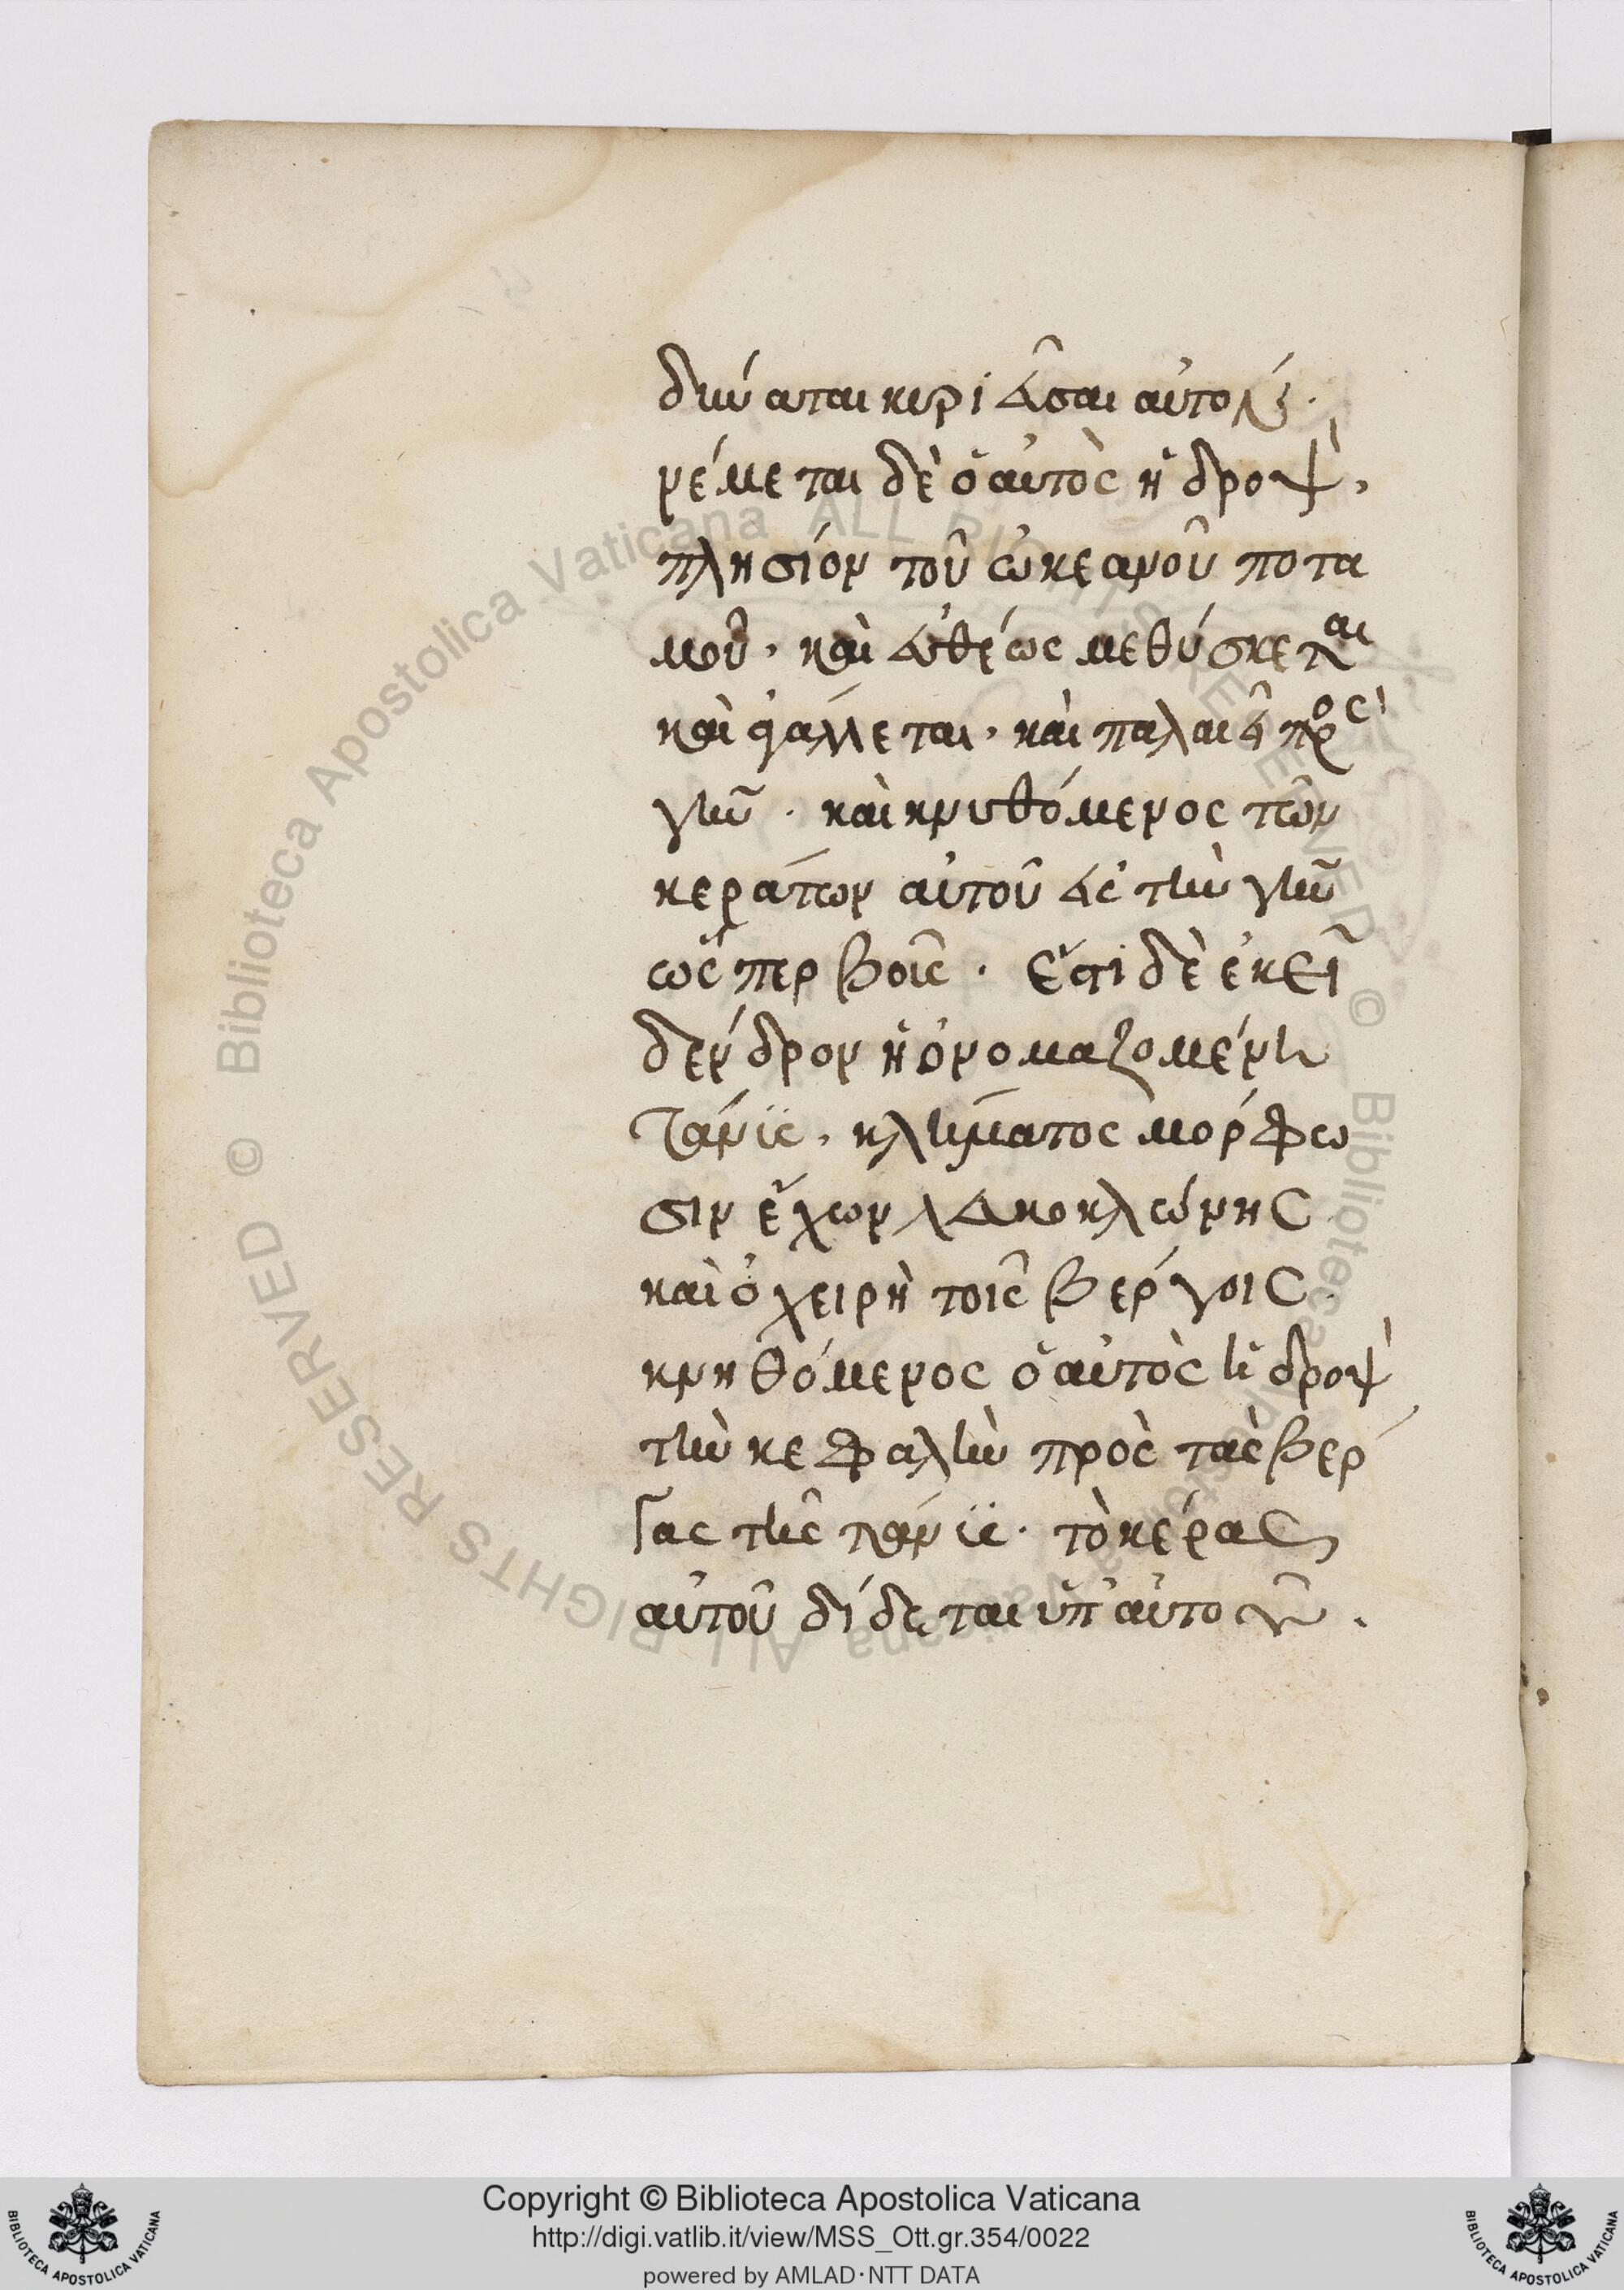 δύναται κυριεῦσαι αὐτόν.
νέμεται δὲ ὁ αὐτὸς ἤδροψ,
πλησίον τοῦ ὠκεανοῦ ποτα
μοῦ. καὶ εὐθέως μεθύσκεται
καὶ σφάλλεται. καὶ παλαίει πρὸς
γῆν. καὶ κνυθόμενος τῶν
κεράτων αὐτοῦ εἰς τὴν γῆν
ὥσπερ βοῦς. ἔστι δὲ ἐκεῖ
δένδρον ἢ ὀνομαζομένη
τάνις. κλήματος μόρφω
σιν ἔχων λευκοκλώνης
καὶ ὀχειρὴ τοῖς βέργοις.
κνηθόμενος ὁ αὐτὸς ἤδροψ
τὴν κεφαλὴν πρὸς τὰς βέρ
γας τῆς τάνις. τὸ κέρας
αὐτοῦ δίδεται ὑπ' αὐτῶν.
Copyright © Biblioteca Apostolica Vaticana
http://digi.vatlib.it/view/MSS_Ott.gr.354/0022
powered by AMLAD·NTT DATA
BIBLIOTECA APOSTOLICA VATICANA
BIBLIOTECA APOSTOLICA VATICANA
© Biblioteca Apostolica Vaticana ALL RIGHTS RESERVED © Biblioteca Apostolica Vaticana ALL RIGHTS RESERVED